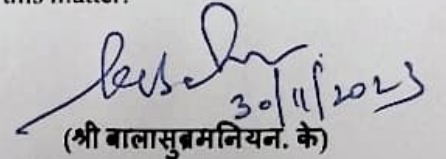 this matter.
30/11/2023
(श्री बालासुब्रमनियन. के)